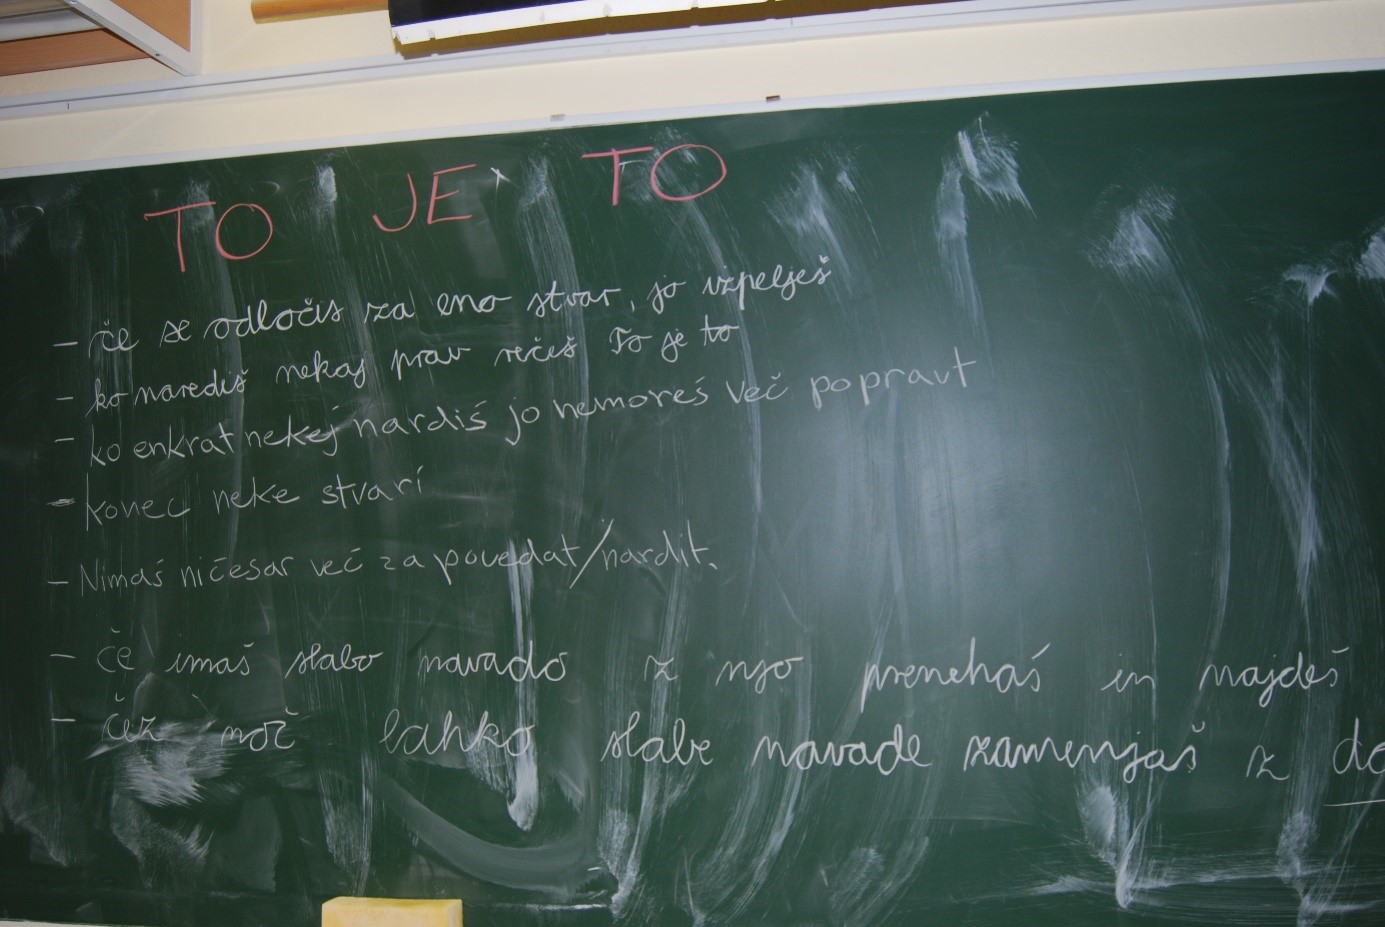 TO JE TO
- če se odločiš za eno stvar, jo izpelješ
- ko narediš nekaj prav rečeš To je to
- ko enkrat nekej nardiš jo nemoreš več popravt
- konec neke stvari
- Nimaš ničesar več za povedat/nardit.
- če imaš slabo navado z njo prenehaš in najdeš
- čez noč lahko slabe navade zamenjaš z do